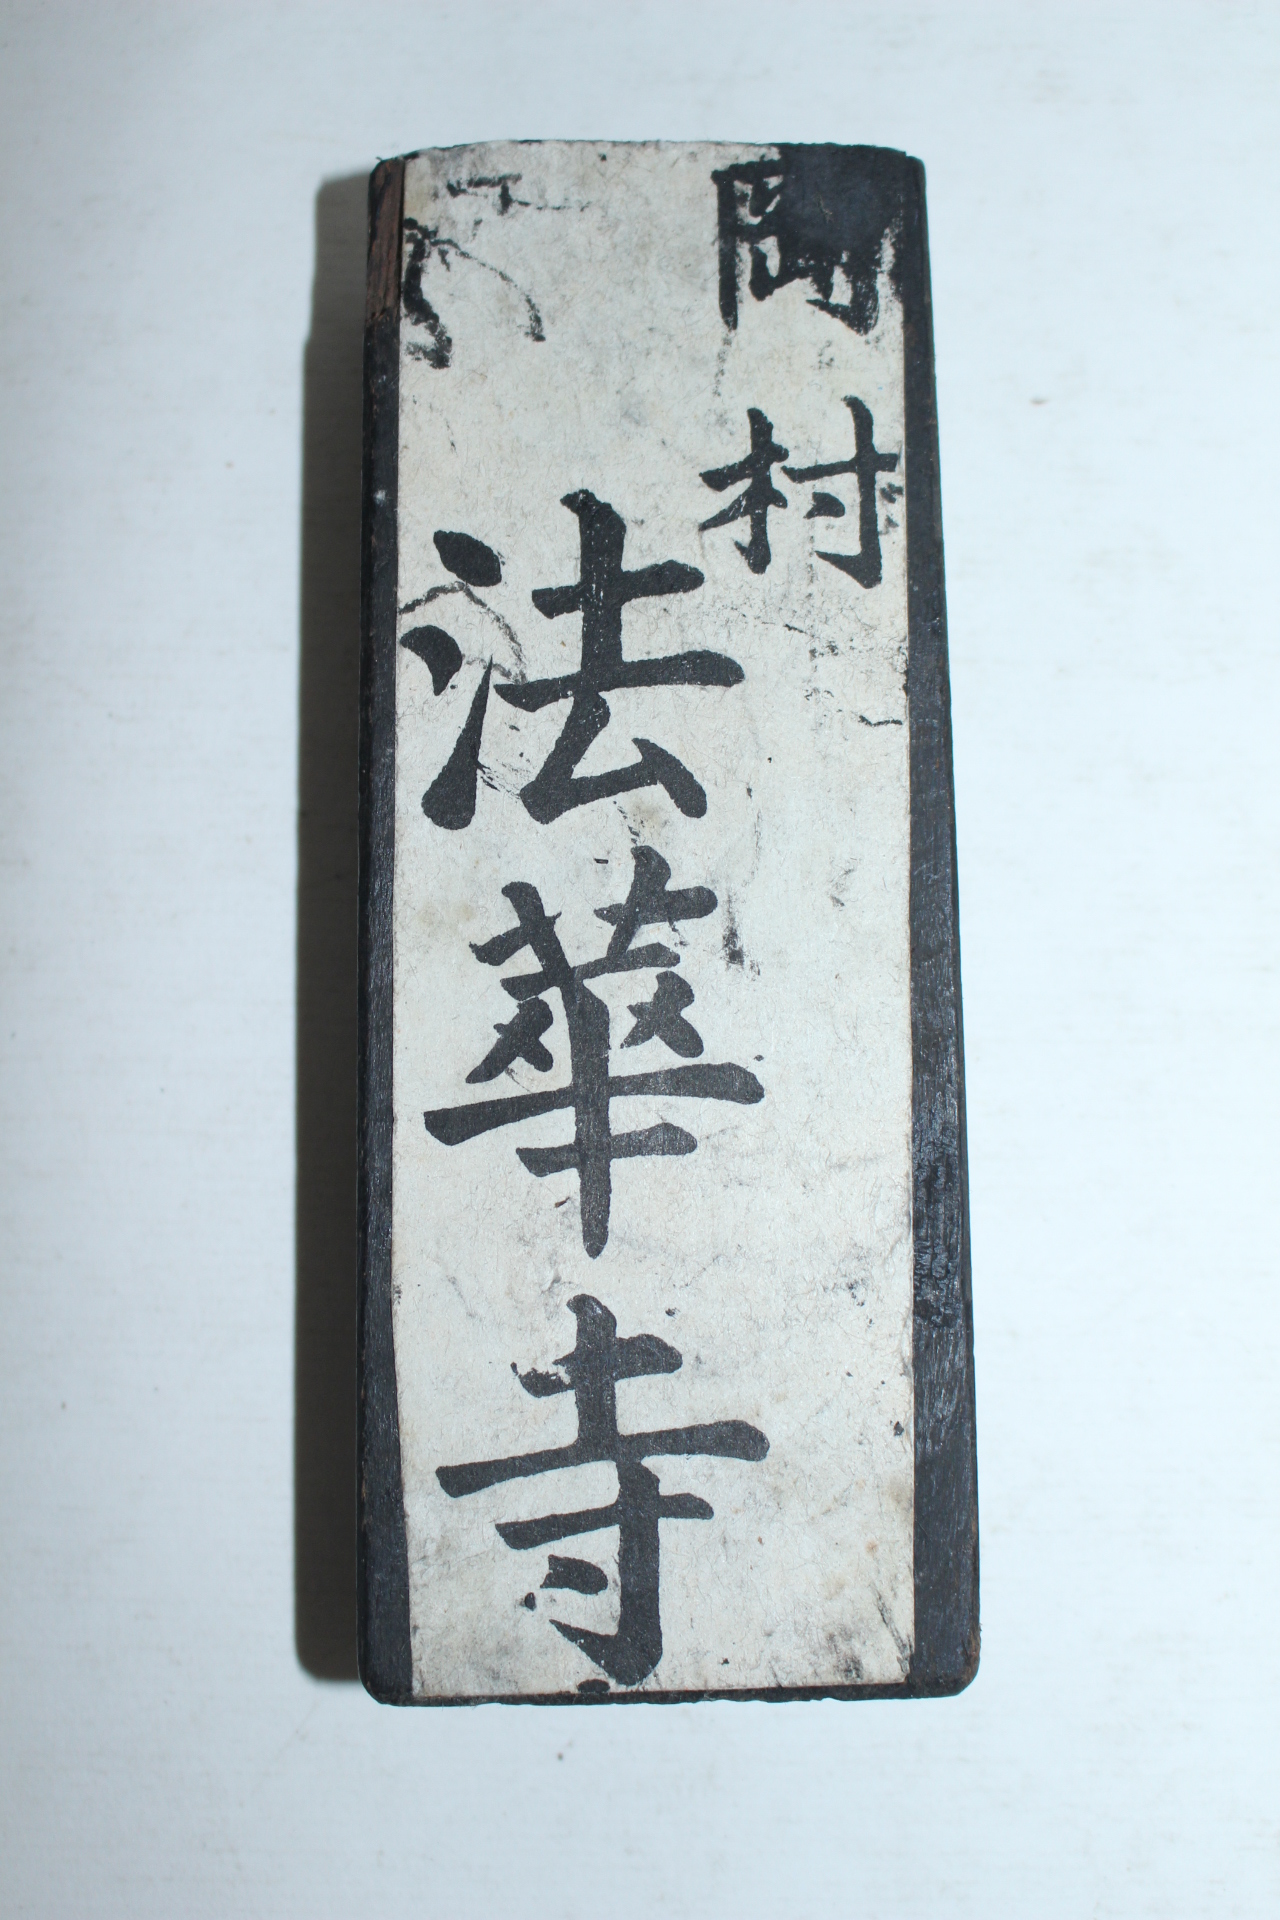 岡村
法華寺